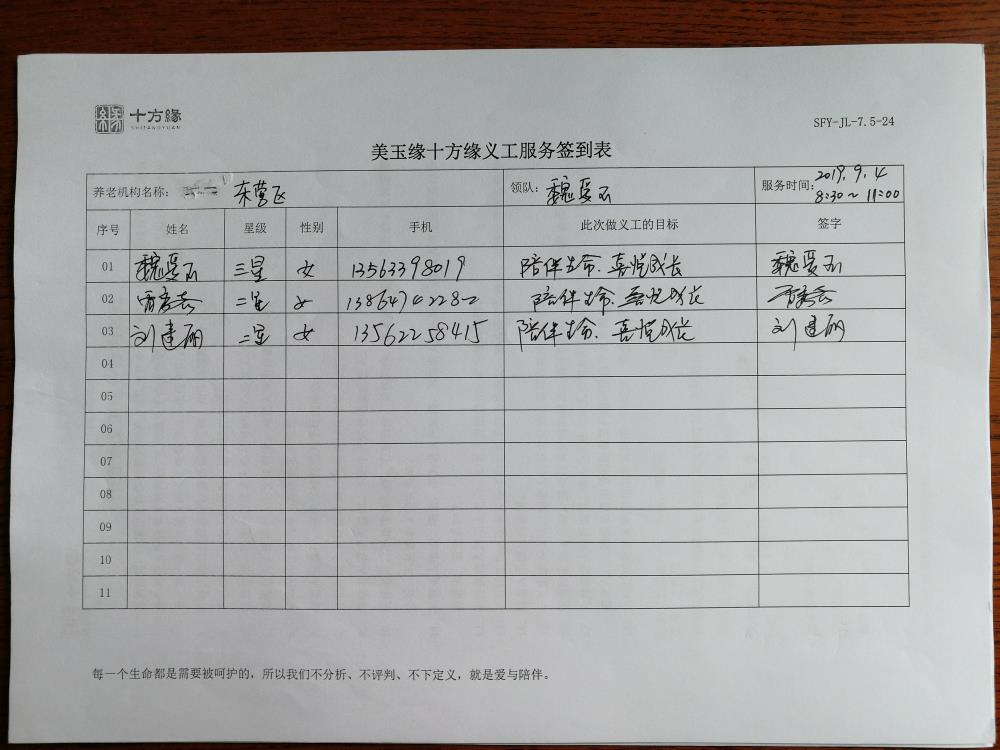 十方缘
SHIFANGYUAN
SFY-JL-7.5-24
美玉缘十方缘义工服务签到表
养老机构名称: 东营区 领队: 魏爱玉 服务时间: 2019.9.4 8:30~11:00
序号 姓名 星级 性别 手机 此次做义工的目标 签字
01 魏爱玉 三星 女 13563398019 陪伴生命、喜悦成长 魏爱玉
02 二星 女 13864742282 陪伴生命、喜悦成长
03 刘建丽 二星 女 13562258415 陪伴生命、喜悦成长 刘建丽
04
05
06
07
08
09
10
11
每一个生命都是需要被呵护的，所以我们不分析、不评判、不下定义，就是爱与陪伴。